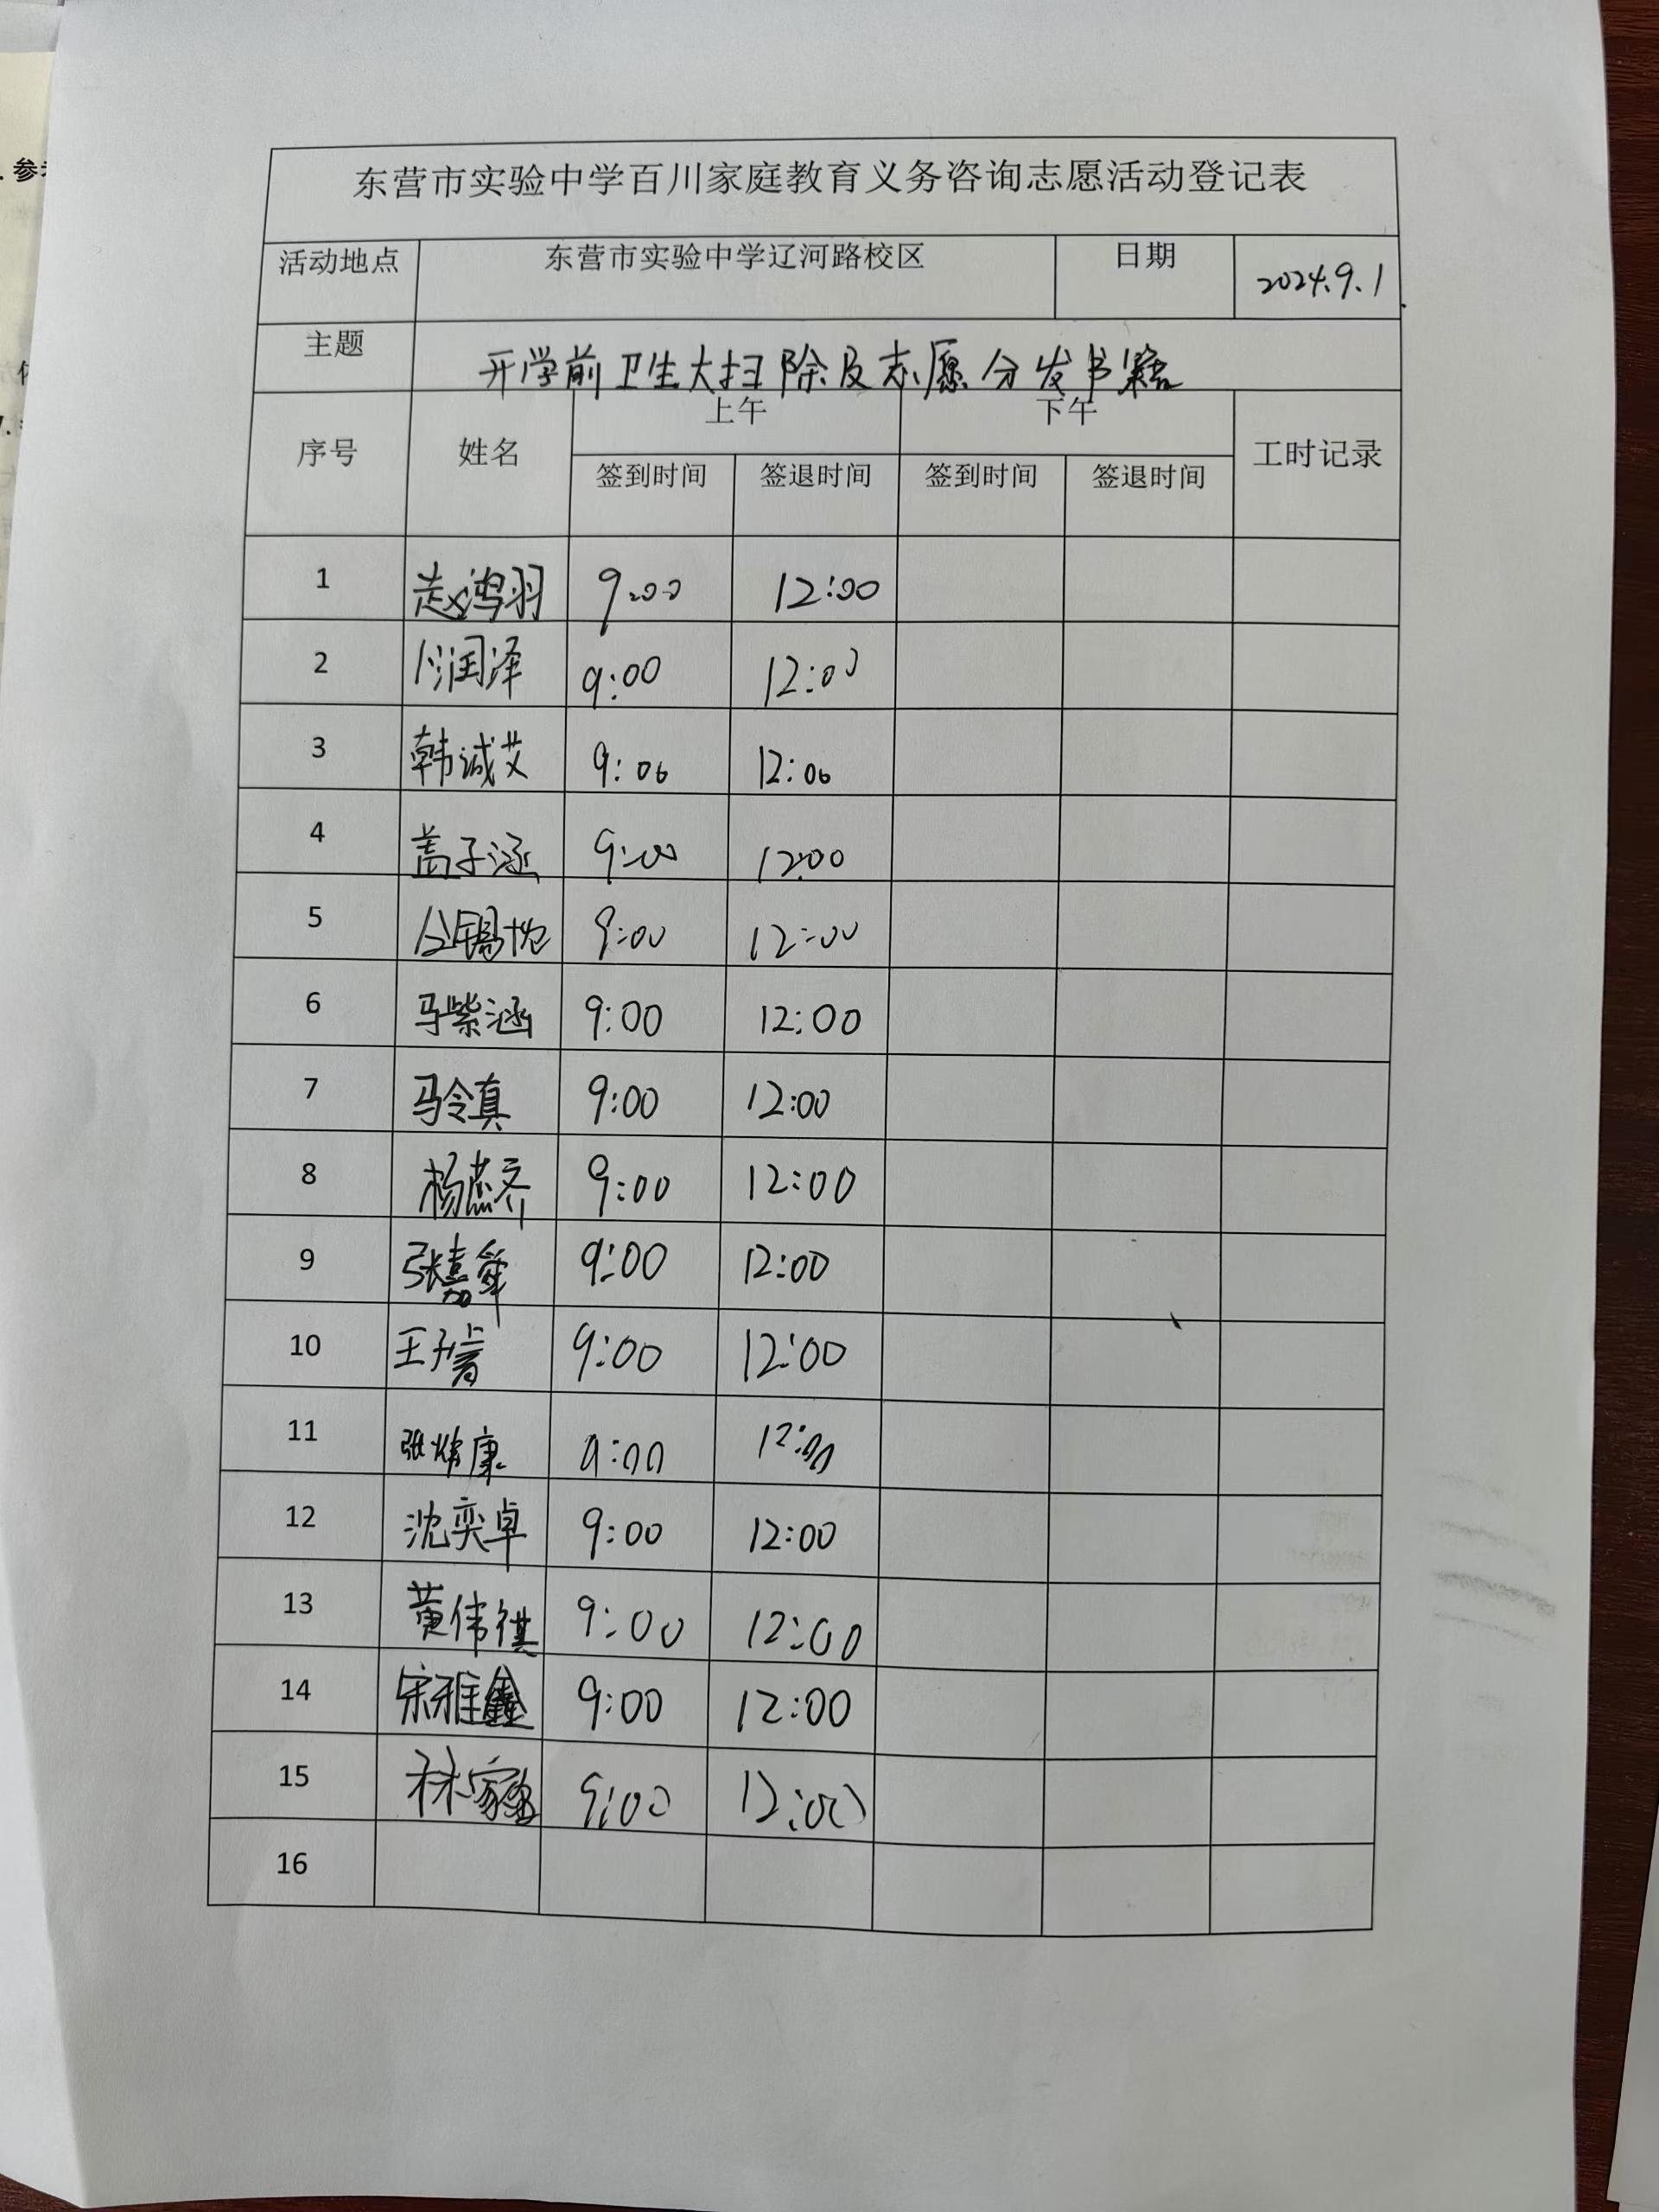 东营市实验中学百川家庭教育义务咨询志愿活动登记表
活动地点 东营市实验中学辽河路校区 日期 2024.9.1
主题 开学前卫生大扫除及志愿分发书籍
序号 姓名 上午 下午 工时记录
签到时间 签退时间 签到时间 签退时间
1 赵鸿羽 9:00 12:00
2 润泽 9:00 12:00
3 韩诚艾 9:00 12:00
4 盖子涵 9:00 12:00
5 9:00 12:00
6 马紫涵 9:00 12:00
7 马令真 9:00 12:00
8 杨燕齐 9:00 12:00
9 张嘉 9:00 12:00
10 王子睿 9:00 12:00
11 张 康 9:00 12:00
12 沈奕卓 9:00 12:00
13 黄伟祺 9:00 12:00
14 宋雅鑫 9:00 12:00
15 林家 9:00 12:00
16